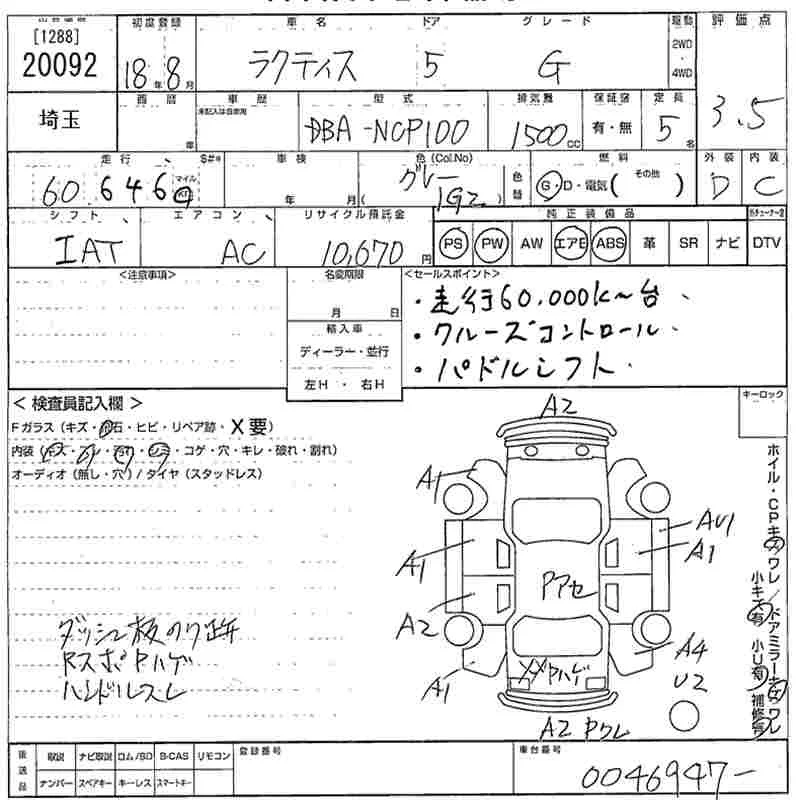 [1288]
20092
埼玉
初度登録 車名 ドア グレード 駆動 評価点
18年8月 ラクティス 5 G 2WD・4WD 3.5
西暦 車歴 型式 排気量 保証書 定員
年 未記入は自家用 DBA-NCP100 1500CC 有・無 5名
走行 S#* 車検 色(Col.No) 色替 燃料 外装 内装
60,646 マイル Km 年 月 グレー (1G2) G・D・電気( その他 ) D C
シフト エアコン リサイクル預託金 純正装備品
IAT AC 10,670円 PS PW AW エアB ABS 革 SR ナビ DTV
<注意事項> 名変期限 <セールスポイント>
月 日
・走行60,000k~台、
輸入車
・クルーズコントロール、
ディーラー・並行
・パドルシフト、
左H・右H
<検査員記入欄>
キーロック
Fガラス(キズ・飛石・ヒビ・リペア跡・X要)
内装(キズ・スレ・汚れ・シミ・コゲ・穴・キレ・破れ・割れ)
オーディオ(無し・穴)/タイヤ(スタッドレス)
A2
A1 A1
AU1
A1 A1
Pアセ
A2
A4
U2
A1
XX Pハゲ
A2 Pワレ
ダッシュ板のり跡
RスポPハゲ
ハンドルスレ
ホイル・CPキズワレ/ドアミラーキズワレ
小キズ有 小U有 補修有
後送品 取説 ナビ取説 ロム/SD B-CAS リモコン 登録番号 車台番号
ナンバー スペアキー キーレス スマートキー 0046947-